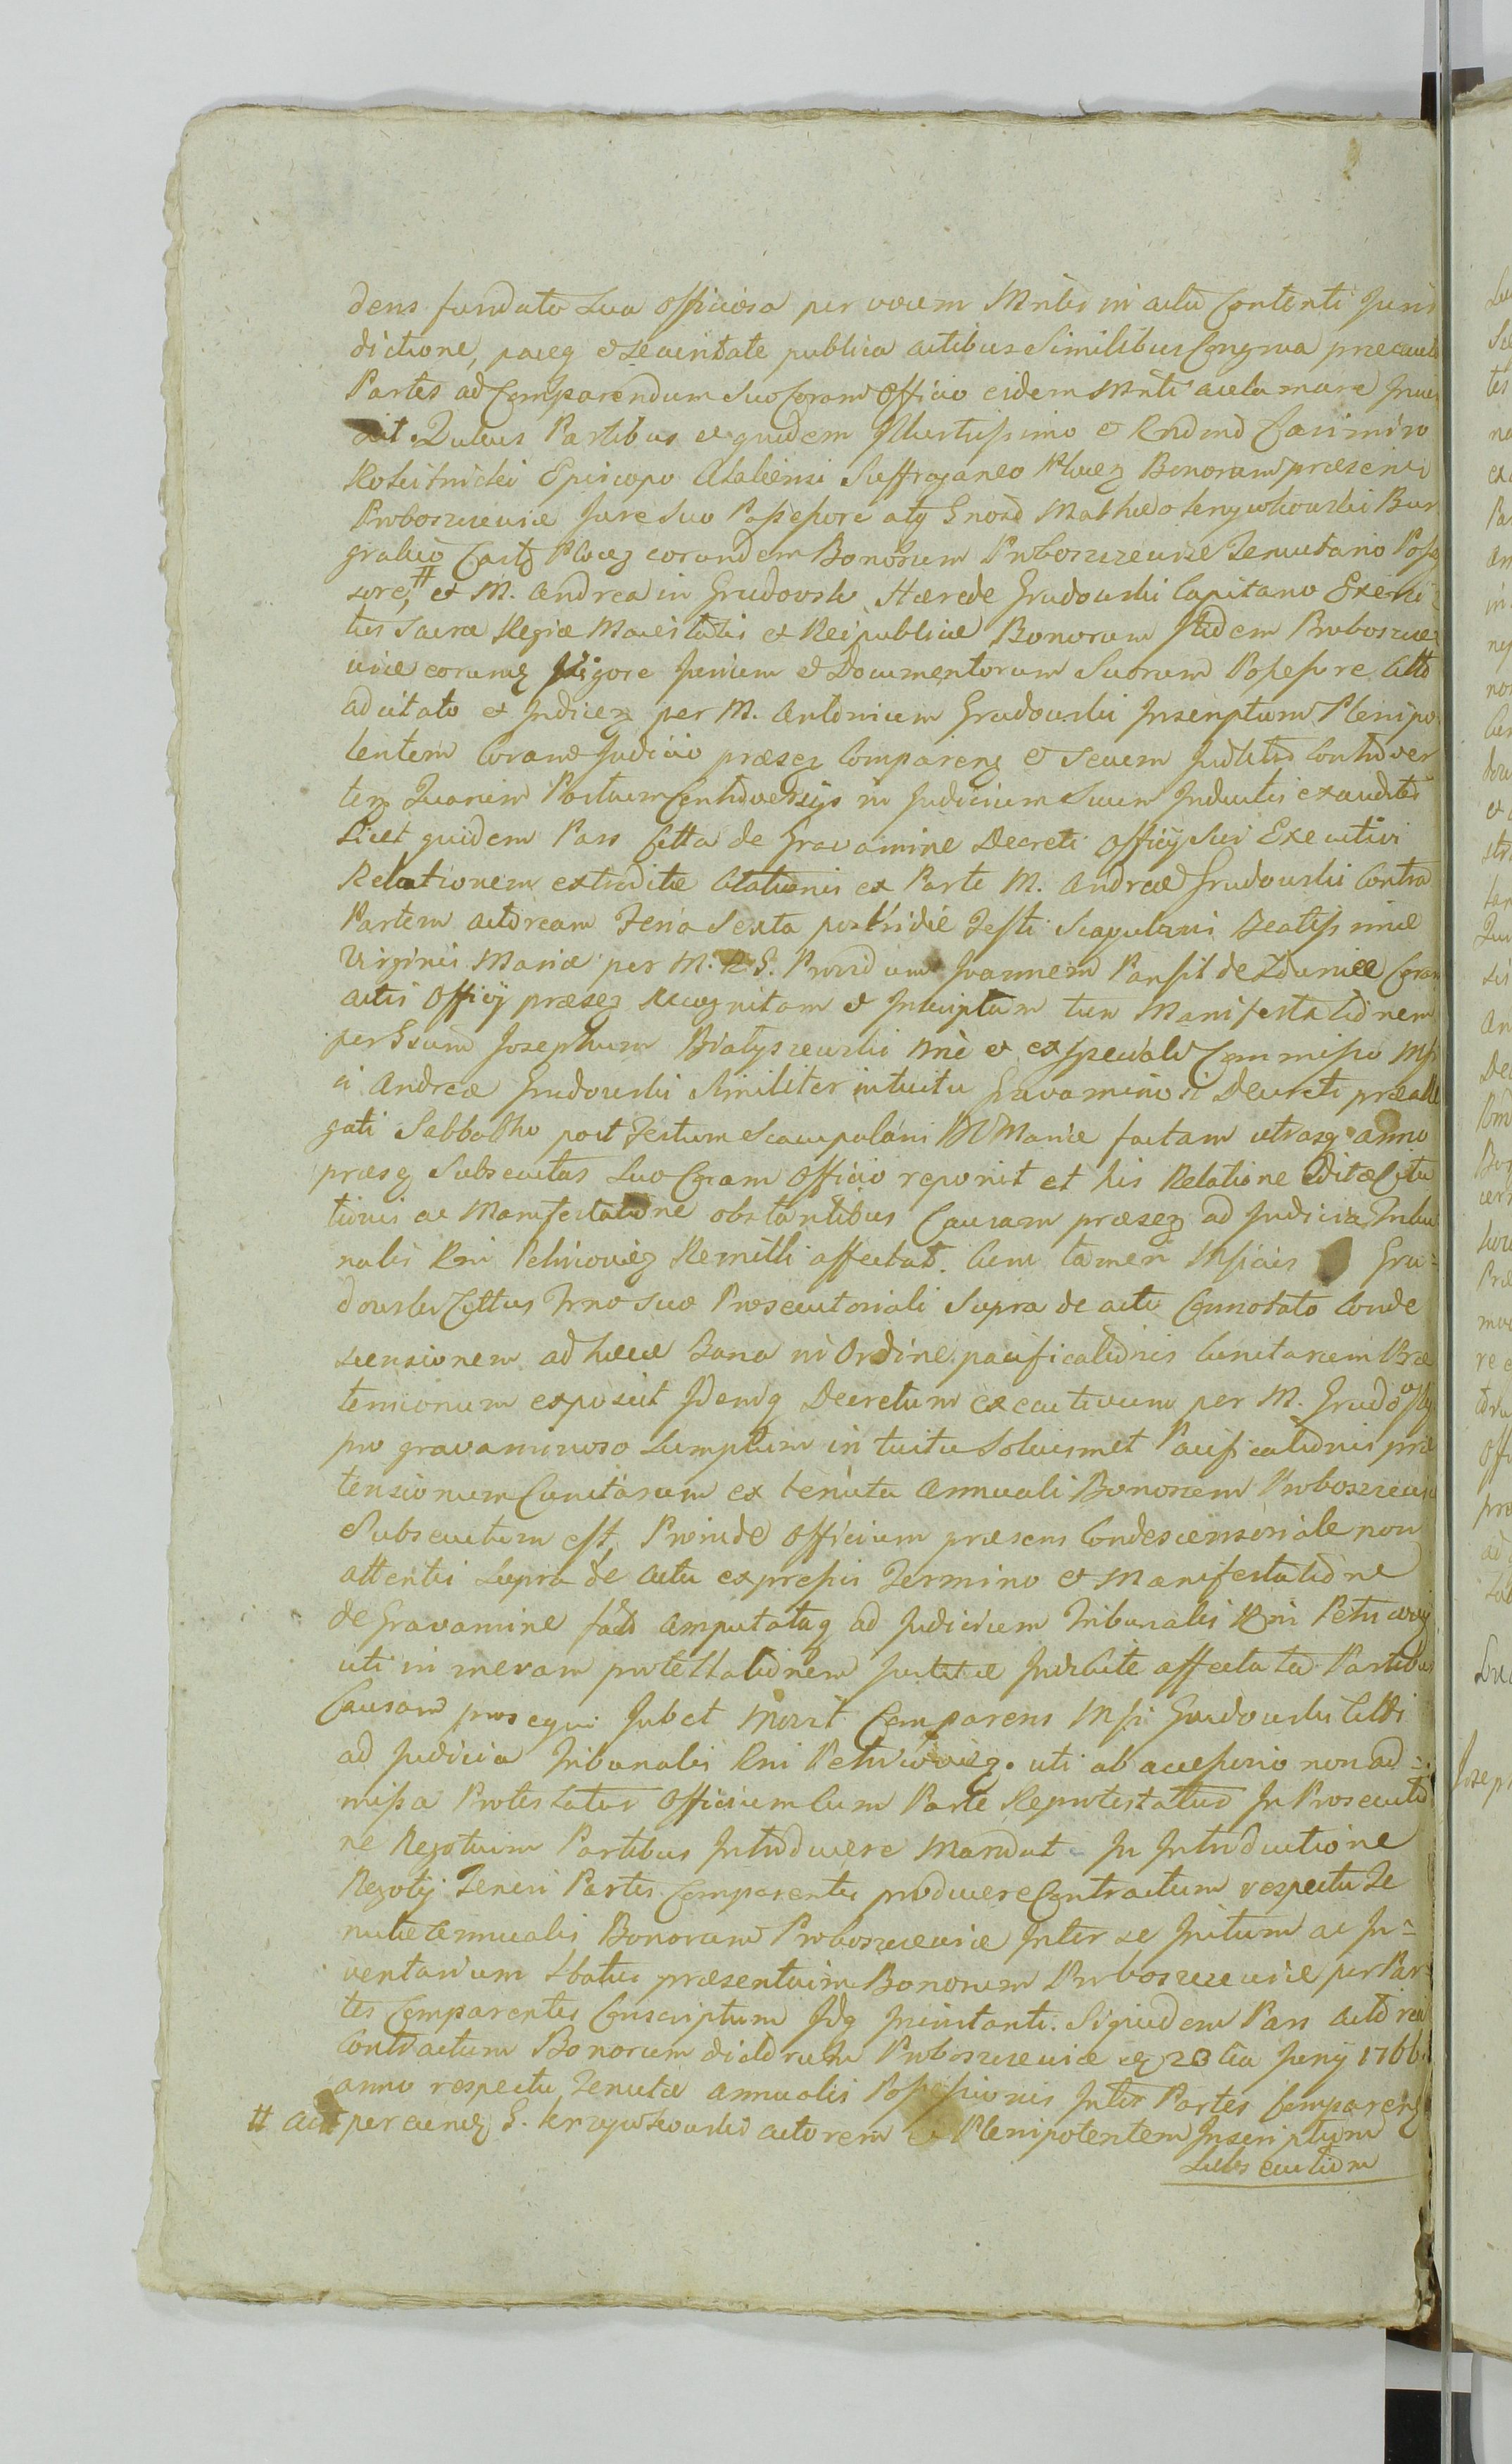 dens fundata sua officiosa per vocem Mnlis in actu Contenti Juris
dictione, paceq et securitate publica actibus Similibus Congrua praecauta
Partes ad Comparendum suo Coram Officio eidem Mnli acclamare Jnui
xit. Quibus Partibus et quidem Jllustrissimo et Rndmo Casimiro
Rokitnicki Episcopo Suffraganeo Plocz Bonorum praesenti
Proboszczewice Jure suo Possessore atq Gnoso Mathaeo Krzywkowski Bur
grabio Castr Plocz eorundem Bonorum Proboszczewice Tenutario Posse
sore, # et M. Andrea in Grudowsk Haerede Grudowski Capitano Exerci
tus Sacrae Regiae Maiestatis et Reipublicae Bonorum Jtidem Proboszcze
wice eorumq Vigore Jurium et Documentorum Suorum Possessore Citto
adcitato et Judiceq per M. Antonium Grudowski Jnscriptum Plenipo
tentem Coram Judicio praeseq Compareng et secum Judtitr Controver
teng Quarum Partium Controversijs in Judicium Suum Jnductis exauditis
Licet quidem Pars Citta de Gravamine Decreti Officij sui Executivi
Relationem extraditae Citationis ex Parte M. Andreae Grudowski Contra
Partem actoream Feria Sexta postridie Festi Scapularis Beatissimae
Virginis Mariae per M. R. G. Providum Joannem Pansil de Zdunice Coram
actis Officij praeseq Recognitam et Jnscriptam tum Manifestationem
per Gsum Josephum Bialyszewski nnie et ex speciali Commisso Msi
ci Andreae Grudowski similiter intuitu gravaminosi Decreti praealle
gati Sabbatho post Festum Scapulari BV Mariae factam utrasq anno
praesq Subsecutas suo Coram Officio reponit et his Relatione editae Cita
tionis ac Manifestatione obstantibus Causam praeseq ad Judicia Tribu
nalis Rni Petricovieq Remitti affectat. Cum tamen Msicus Gru=
dowski Cittus Trno suo Prosecutoriali Supra de actu Connotato Conde
scensionem ad haec Bona in Ordine pacificationis Cunctarum Prae
tensionum exposuit Jdemq Decretum executivum per M. Grudowsky
pro gravaminoso Sumptum intuitu Solummet Pacificationis prae
tensionum Cunctarum ex tenuta Annuali Bonorum Proboszczewice
Subsecutum est, Proinde Officium praesens Condescensoriale non
attentis supra de Actu expressis Termino et Manifestatione
de Gravamine facto amputataq ad Judicium Tribunalis Rni Petricovieq
uti in meram protestationem Justitiae Jndebite affectata Partibus
Causam prosequi Jubet Movit Comparens Msi Grudowski Citti
ad Judicia Tribunalis Rni Petricovieq. uti ab accessorio non ad=
missa Protestatur Officium Cum Parte Reprotestatur Jn Prosecutio
ne Negotium Partibus Jntroducere Mandat Jn Jntroductione
Negotij Teneri Partes Comparentes producere Contractum respectu Te
nutae Annualis Bonorum Proboszczewice Jnter se Jnitum ac Jn=
ventarium Status praesentium Bonorum Proboszczewice per Par
tes Comparentes Conscriptum Jdq Jninstanti. Siquidem Pars actorea
Contractum Bonorum dictorum Proboszczewice eq 20 tia Junij 1766
anno respectu Tenutae annualis Possessionis Jnter Partes Compareng
# act per eumq G. Krzywkowski actorem et Plenipotentem Jnscriptum
Subsecutum